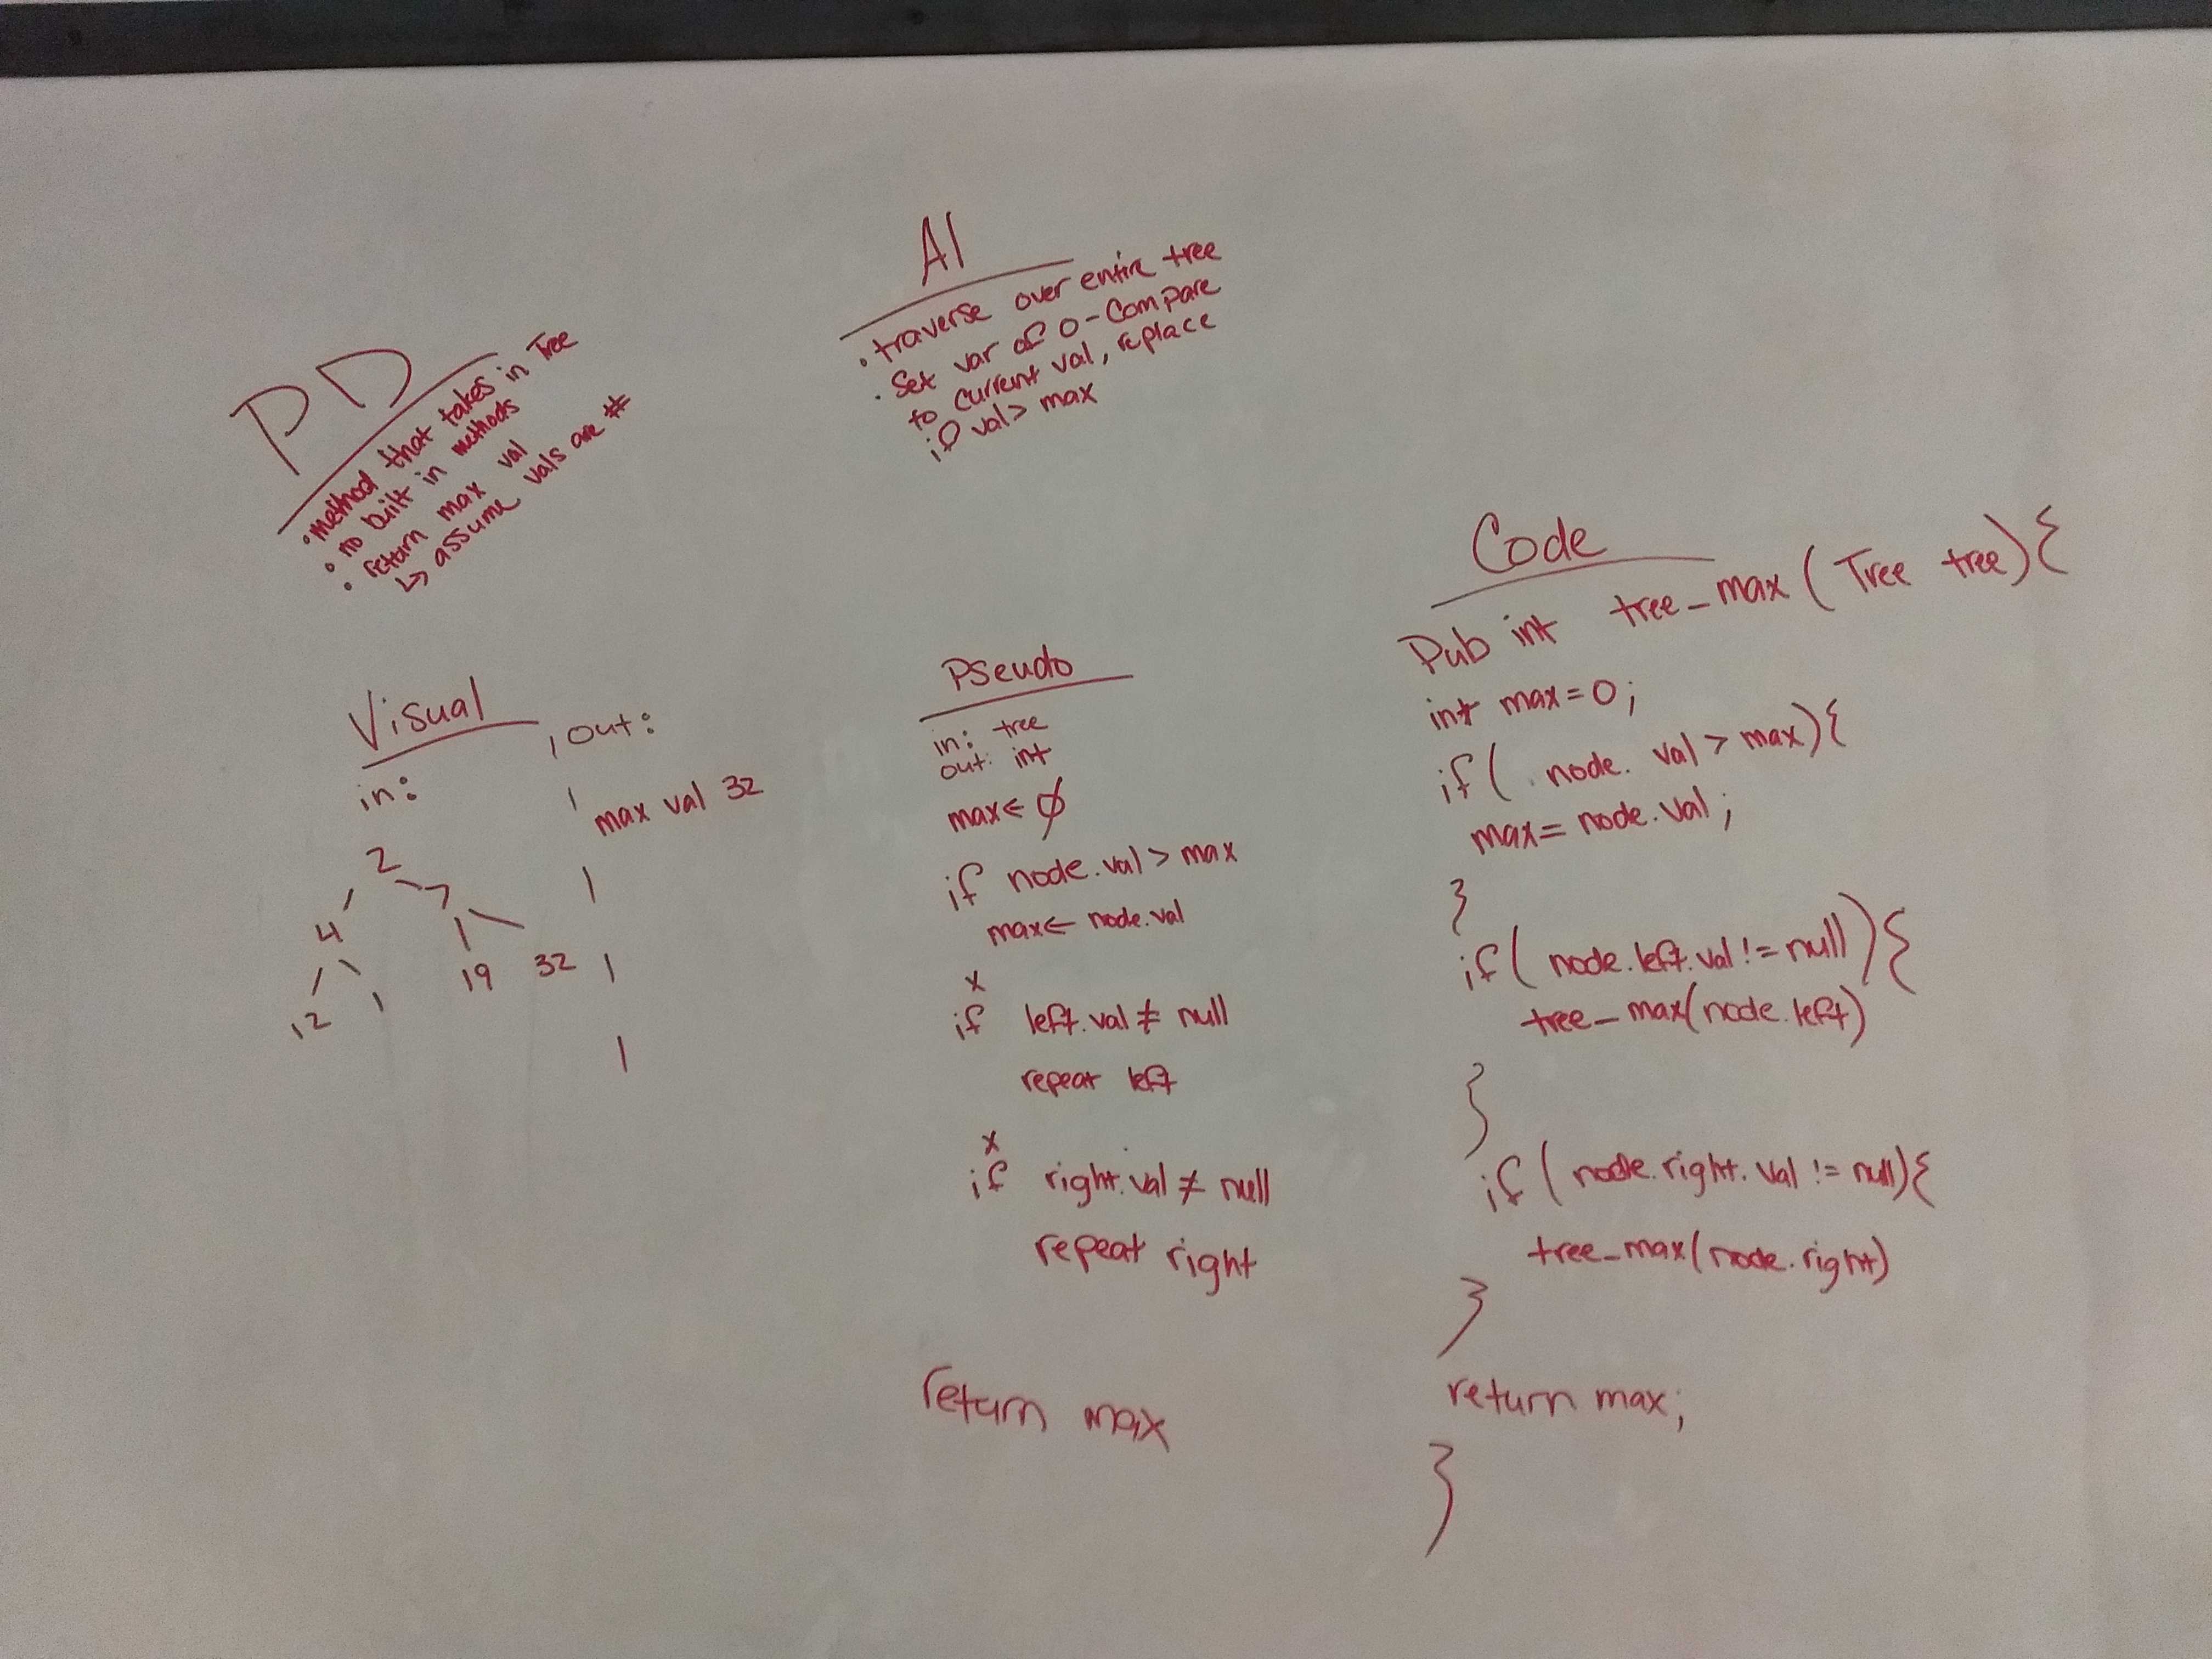 PD
• method that takes in Tree
• no built in methods
• return max val
↳ assume vals are #
Al
• traverse over entire tree
• Set var of 0 - Compare
to current val, replace
if val > max
Visual
in:
out:
max val 32
2
4 7
12 1 19 32
Pseudo
in: tree
out: int
max ← Ø
if node.val > max
max ← node.val
x
if left.val ≠ null
repeat left
x
if right.val ≠ null
repeat right
return max
Code
Pub int tree_max (Tree tree){
int max = 0;
if( node. val > max){
max = node.val;
}
if( node.left.val != null){
tree_max(node.left)
}
if( node.right.val != null){
tree_max(node.right)
}
return max;
}